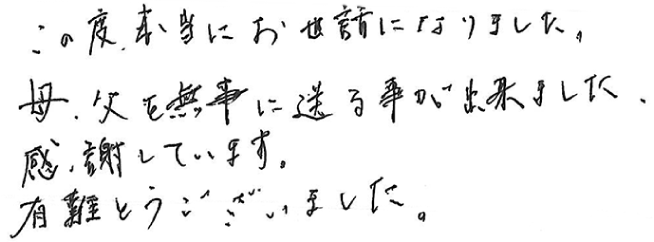 この度、本当にお世話になりました。
母、父を無事に送る事が出来ました、
感謝しています。
有難とうございました。